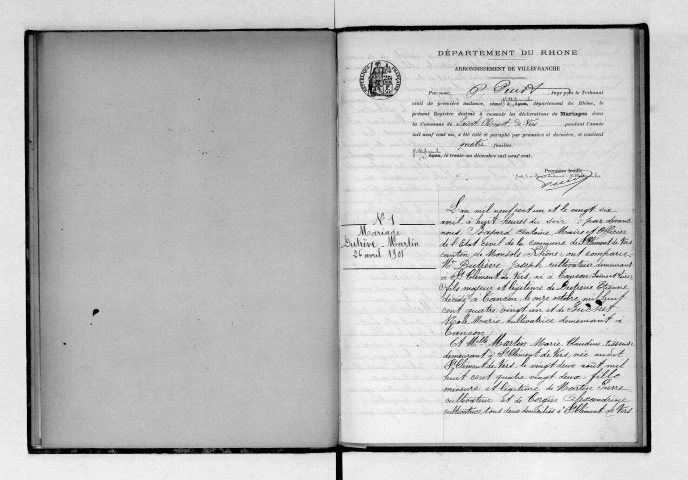 RÉPUBLIQUE FRANÇAISE
DÉPARTEMENT DU RHONE
ARRONDISSEMENT DE VILLEFRANCHE
Par nous, P. Juge près le Tribunal
civil de première instance, séant à Lyon, département du Rhône, le
présent Registre destiné à recevoir les déclarations de Mariages dans
la Commune de Saint Clément de Vers pendant l'année
mil neuf cent un, a été coté et paraphé par première et dernière, et contient
quatre feuilles
Lyon, le trente-un décembre mil neuf cent.
Première feuille
N° 1
Mariage
Dutrève - Martin
26 avril 1901
L'an mil neuf cent un et le vingt six
avril à huit heures du soir : par devant
nous, Antoine, Maire et Officier
de l'Etat Civil de la commune de St Clément de Vers
canton de Monsols (Rhône) ont comparu :
Mr Dutrève Joseph cultivateur demeurant
à St Clément de Vers, né à Cançon
fils majeur et légitime de Dutrève Etienne
décédé à Cançon le onze octobre mil huit
cent quatre vingt un et de
Marie, cultivatrice demeurant à
Cançon ;
Et Melle Martin Marie Claudine, tisseuse
demeurant à St Clément de Vers, née audit
St Clément de Vers, le vingt deux août mil
huit cent quatre vingt deux, fille
mineure et légitime de Martin Pierre
cultivateur et de Alexandrine
cultivatrice tous deux domiciliés à St Clément de Vers